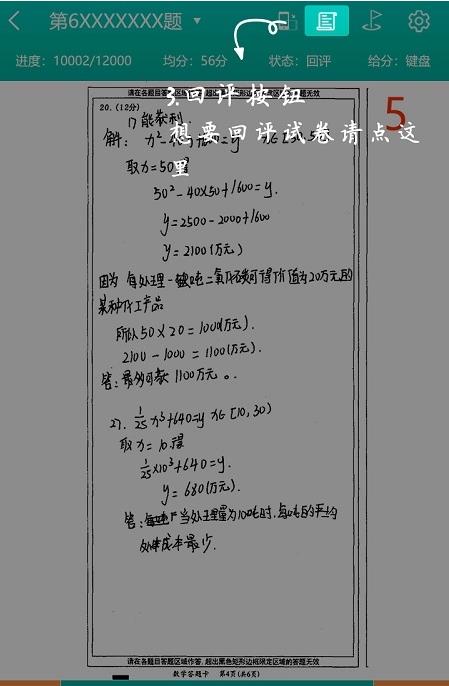 第6XXXXXXX题
进度：10002/12000 均分：56分 状态：回评 给分：键盘
3.回评按钮
想要回评试卷请点这
里
5
20.（12分）
能获利
解：
取x=50得
50²-40×50+1600=y.
y=2500-2000+1600
y=2100(万元)
因为 每处理一吨二氧化碳可得价值为20万元的
某种化工产品
所以50×20=1000(万元).
2100-1000=1100(万元).
答：最多可获1100万元。
27. 1/25 x³+640=y x∈[10,30)
取x=10得
1/25×10³+640=y.
y=680(万元).
答：当处理量为100吨时,每吨的平均
处理成本最少.
请在各题目答题区域作答,超出黑色矩形边框限定区域的答题无效
数学答题卡 第4页(共6页)